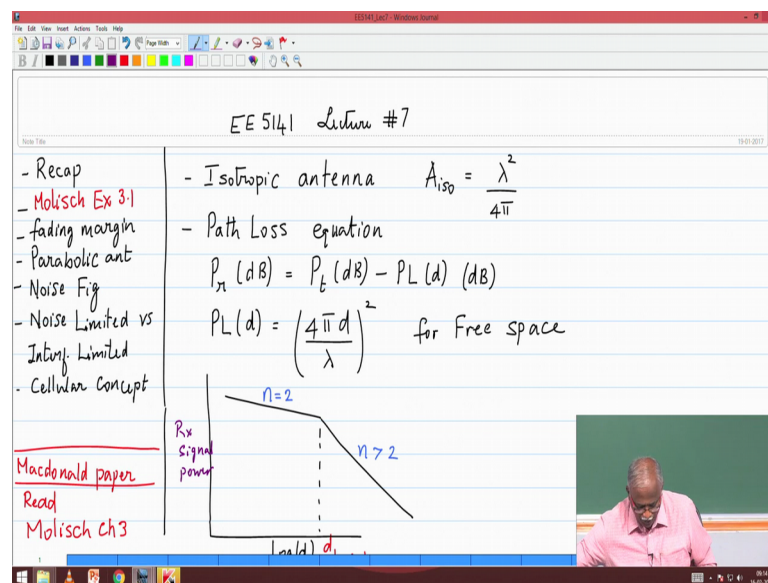 EE5141_Lec7 - Windows Journal
File Edit View Insert Actions Tools Help
Page Width
B I
EE 5141 Lecture #7
Note Title
19-01-2017
- Recap
- Molisch Ex 3.1
- fading margin
- Parabolic ant
- Noise Fig
- Noise Limited vs
Interf. Limited
- Cellular Concept
Macdonald paper
Read
Molisch Ch3
- Isotropic antenna A_iso = λ² / 4π
- Path Loss equation
P_r (dB) = P_t (dB) - PL (d) (dB)
PL(d) = (4πd / λ)² for Free space
n=2
Rx
signal
power
n > 2
d₁
1
09:14